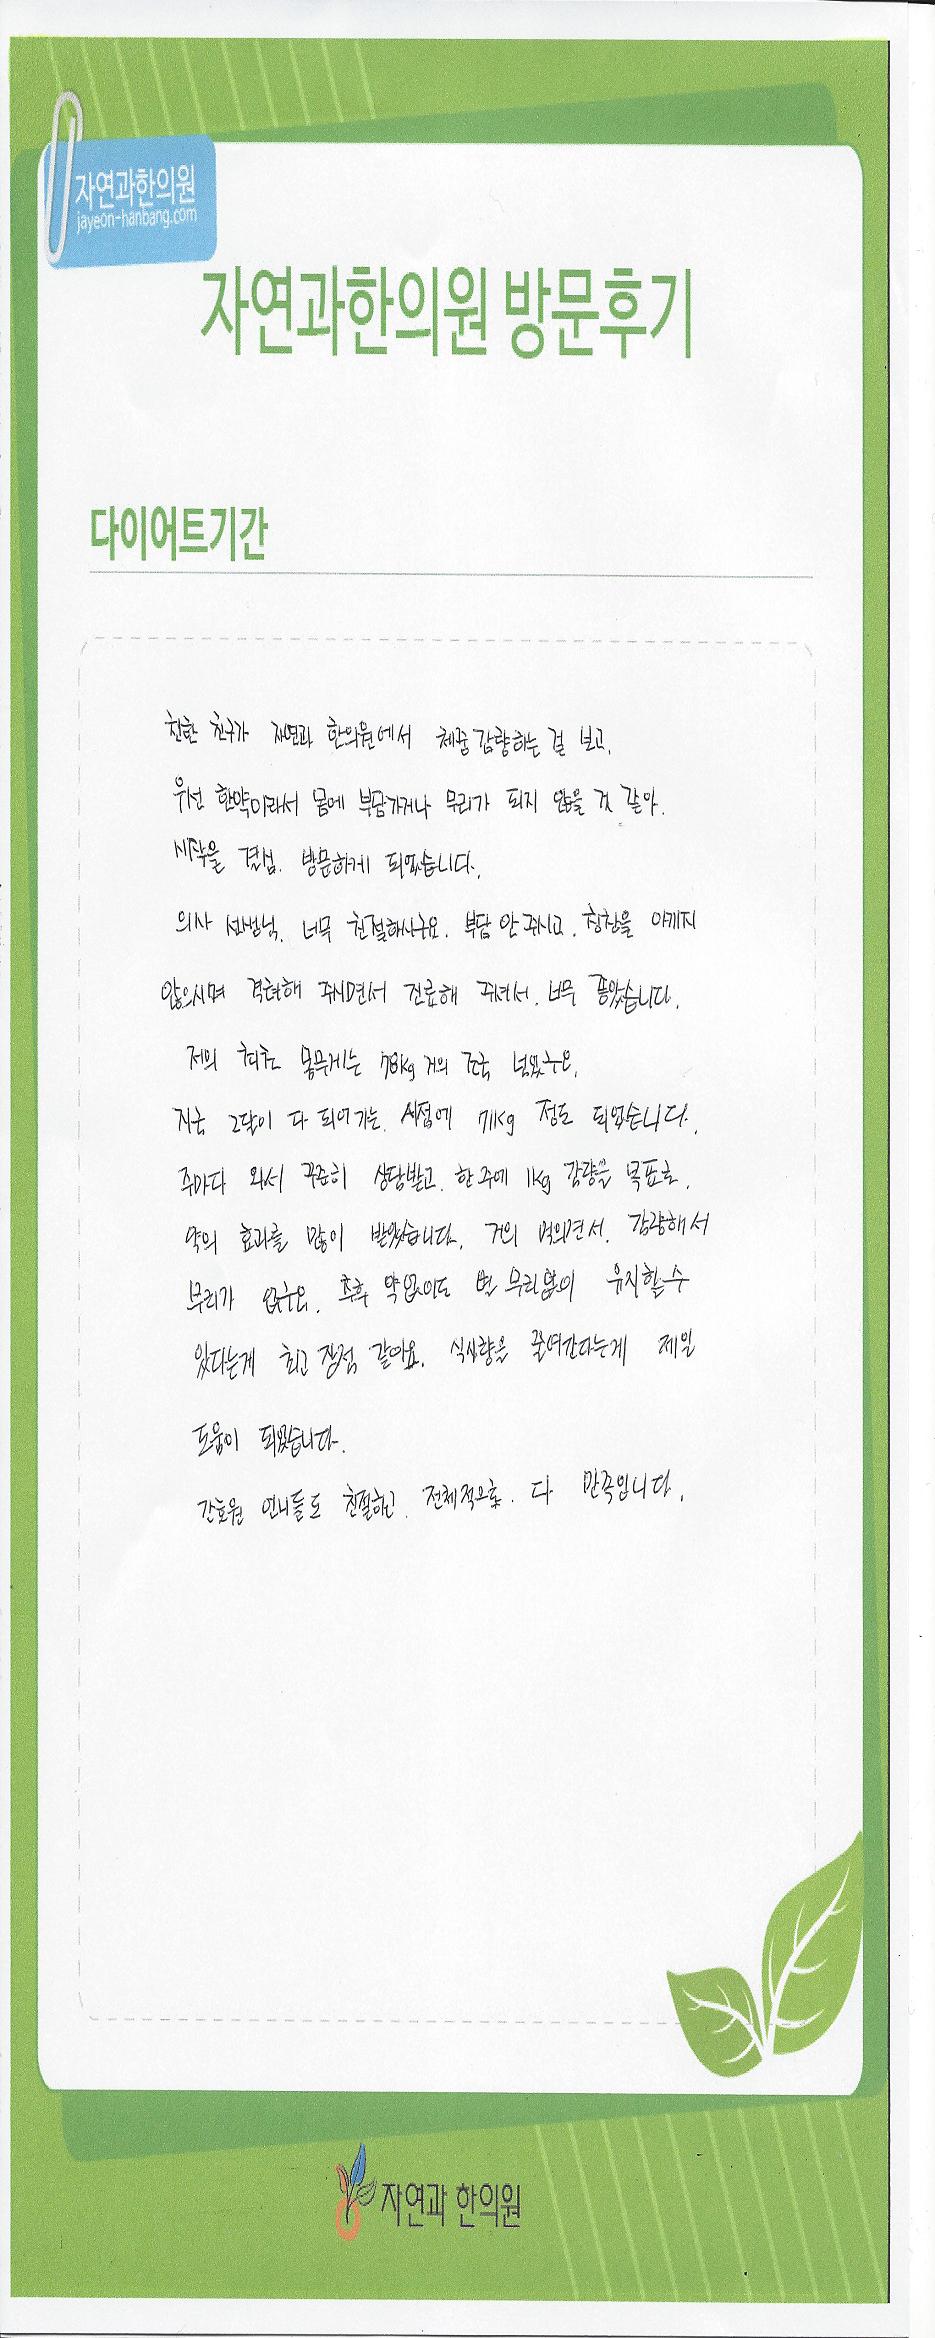 자연과한의원
jayeon-hanbang.com
자연과한의원 방문후기
다이어트기간
친한 친구가 자연과 한의원에서 체중감량하는 걸 보고,
우선 한약이라서 몸에 부담가거나 무리가 되지 않을 것 같아.
시작을 결심. 방문하게 되었습니다.
의사 선생님. 너무 친절하시구요. 부담 안 주시고. 칭찬을 아끼지
않으시며 격려해 주시면서 진료해 주셔서. 너무 좋았습니다.
저의 최초 몸무게는 78kg 거의 조금 넘었구요.
지금 2달이 다 되어가는. 시점에 71kg 정도 되었습니다.
주마다 와서 꾸준히 상담받고. 한주에 1kg 감량을 목표로.
약의 효과를 많이 받았습니다. 거의 먹으면서. 감량해서
무리가 없구요. 추후 약없이도 무리없이 유지할수
있다는게 최고 장점 같아요. 식사량을 줄여간다는게 제일
도움이 되었습니다.
간호원 언니들도 친절하고. 전체적으로. 다 만족입니다.
자연과 한의원